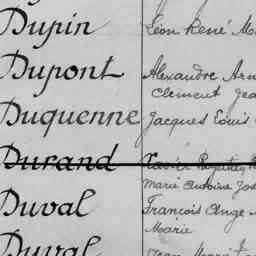 Dupin Léon René
Dupont Alexandre
Clément
Duquenne Jacques Louis
Durand Xavier
Marie Antoine
Duval François Ange
Marie
Duval